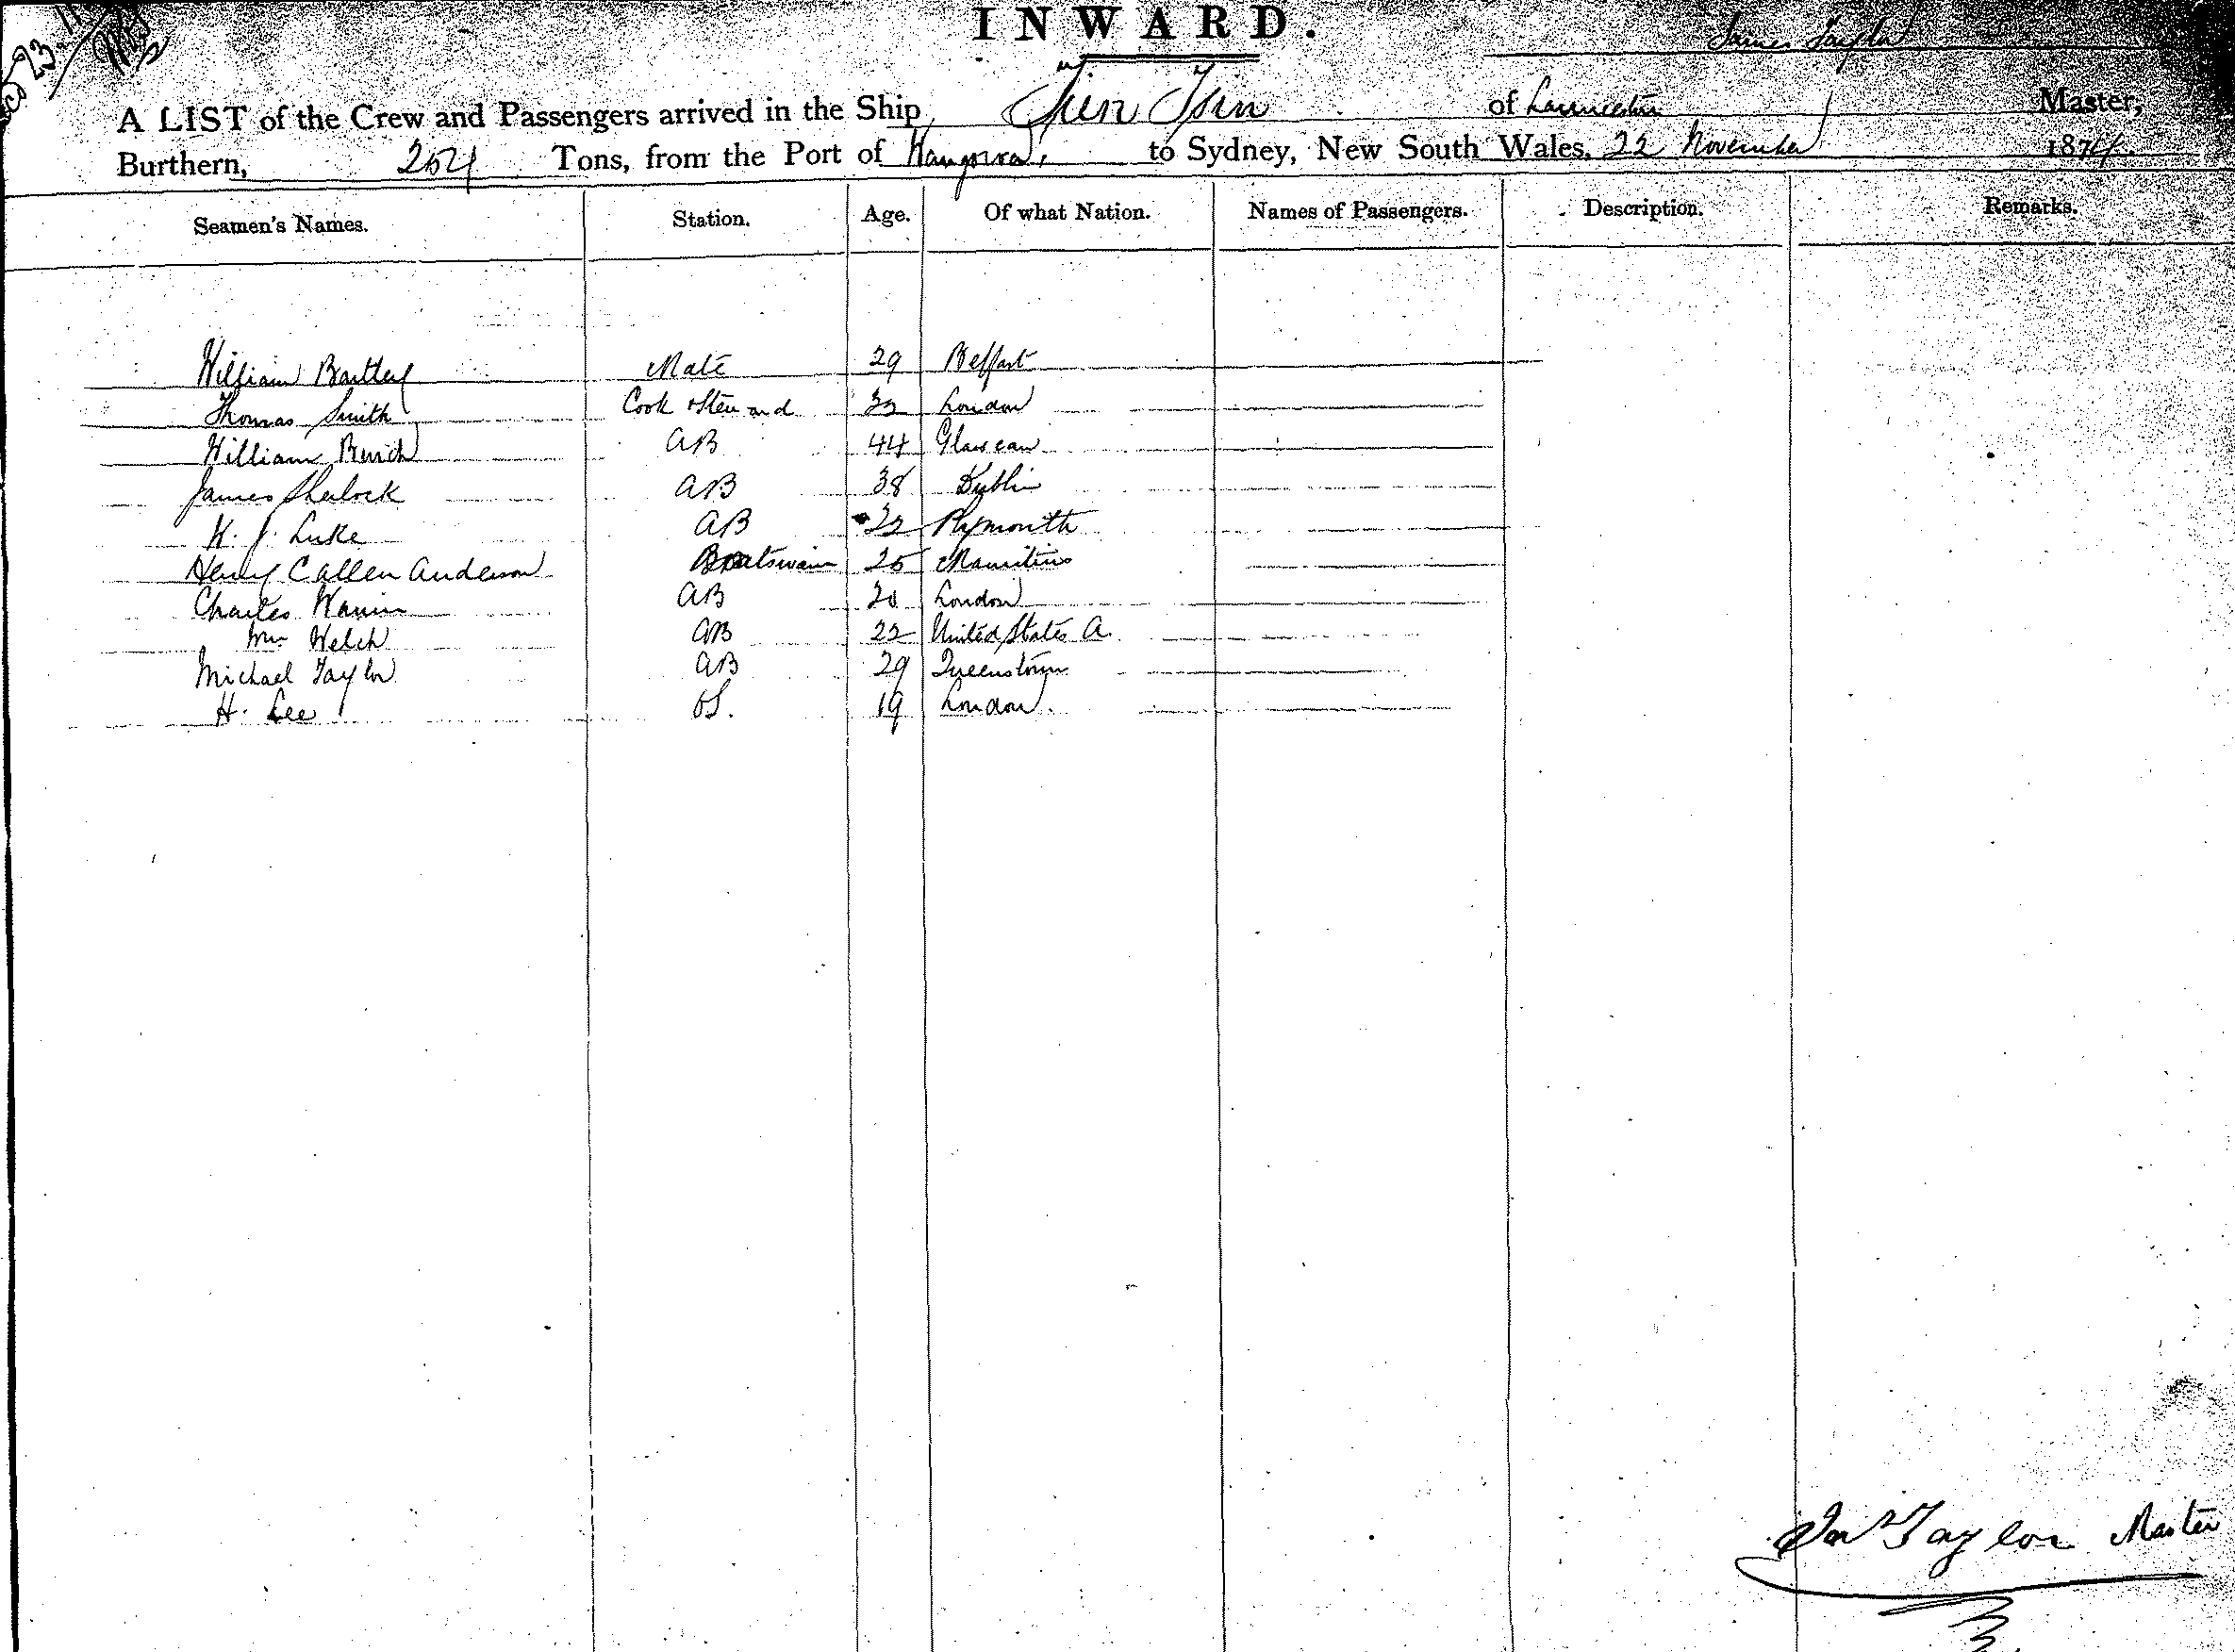 INWARD.
James Taylor
A LIST of the Crew and Passengers arrived in the Ship Tien Tsin of Launceston Master,
Burthern, 254 Tons, from the Port of to Sydney, New South Wales, 22 November 1874.
Seamen's Names. Station. Age. Of what Nation. Names of Passengers. Description. Remarks.
William Bartley Mate 29 Belfast
Thomas Smith Cook & Steward 32 London
William AB 44
James Sherlock AB 38 Dublin
H. J. Luke AB 22 Plymouth
Henry Callen Anderson Boatswain 25 Mauritius
Charles AB 20 London
Wm Welch AB 22 United States A.
Michael Taylor AB 29 Queenstown
H. Lee OS. 19 London.
Jas Taylor Master